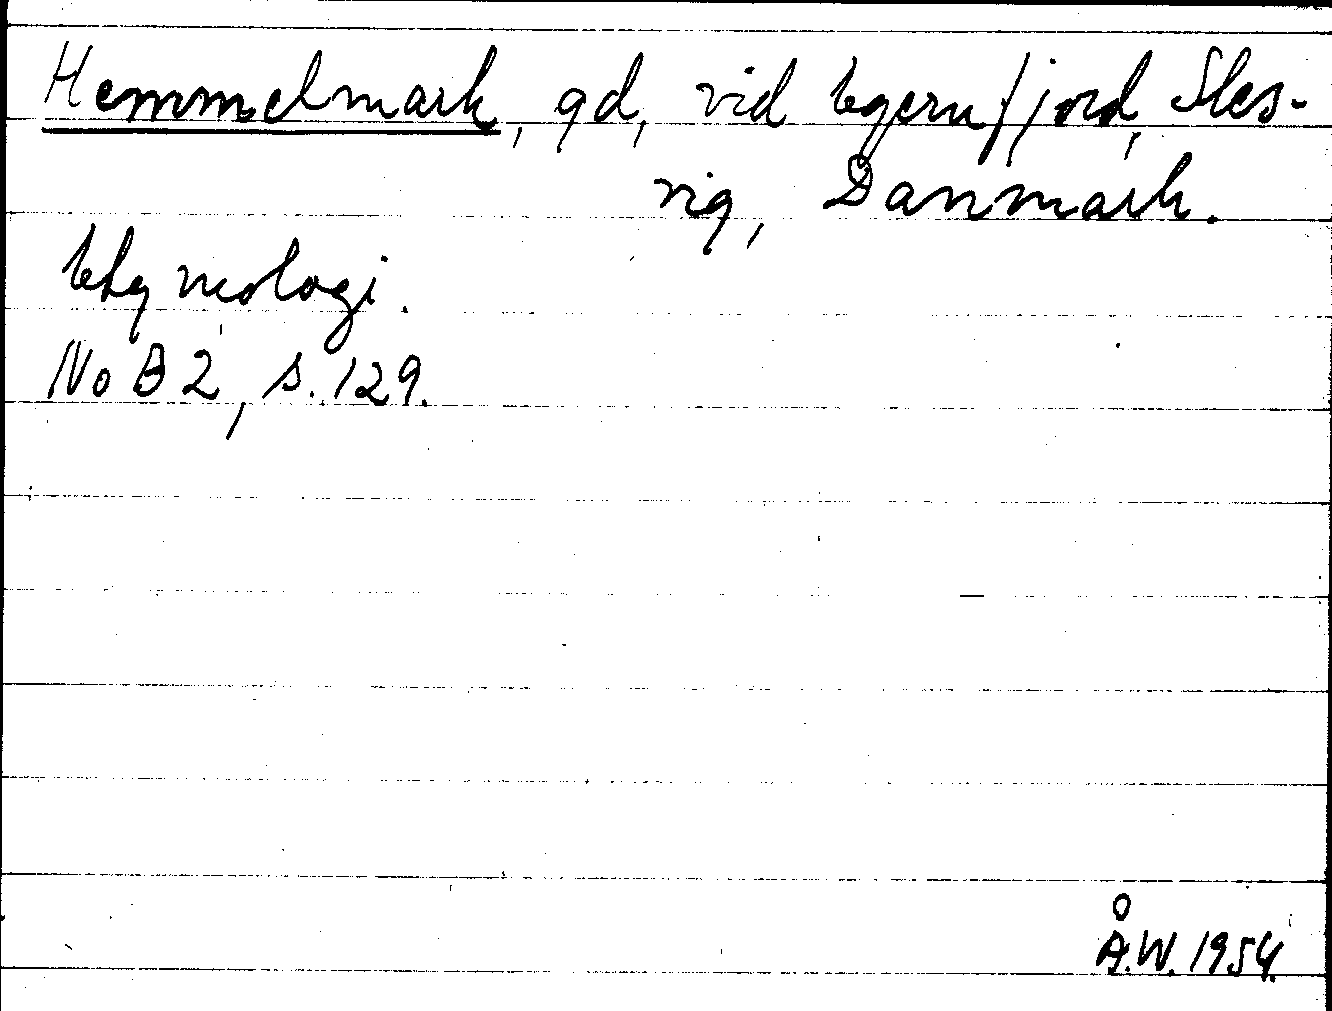 Hemmelmark, gd, vid Egernfjord, Sles-
vig, Danmark.
Etymologi.
NoB 2, s. 129.
Å.W. 1954.